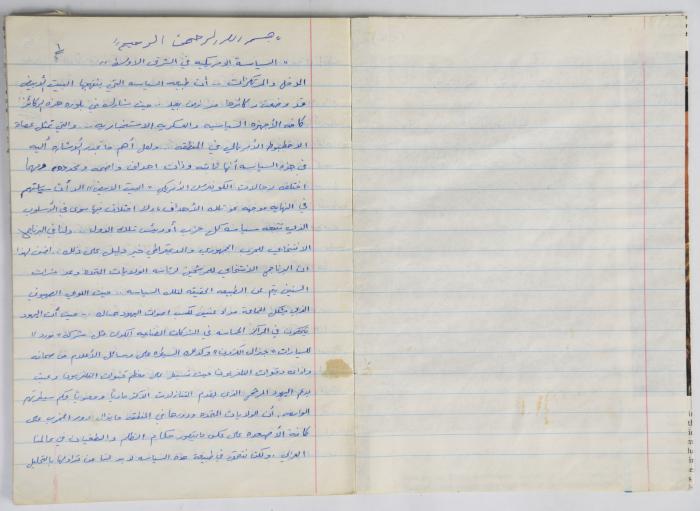 بسم الله الرحمن الرحيم
" السياسة الامريكيه في الشرق الاوسط "
الدخل والمرتكزات .. أن طبيعه السياسه التي ينتهجها البيت الأبيض
قد وضعت ركائزها من زمن بعيد .. حيث شاركت في بلورة هذه الركائز
كافة الأجهزة السياسيه والعسكريه الاستخباريه .. والتي تمثل عصاة
الاخطبوط الأمريالي في المنطقه .. ولعل أهم ما تجدر الإشاره إليه
في هذه السياسه أنها ثابته وذات اهداف واضحه ومحدوده مهما
اختلفت رجالات الكونغرس الأمريكي " البيت الابيض " الا أن سياستهم
في النهايه موجهه نحو تلك الأهداف ولا اختلاف فيها سوى في الأسلوب
الذي تتبعه سياسه كل حزب أو رئيس تلك الدولة .. ولنا في البرنامج
الانتخابي للحزب الجمهوري والديمقراطي خير دليل على ذلك .. اضف لهذا
ان البرنامج الانتخابي للمرشحين لرئاسه الولايات المتحده وعبر عشرات
السنين يتم عن الطبيعه الحقيقه لتلك السياسه .. حيث اللوبي الصهيوني
الذي يشكل لكسب اصوات اليهود هناك .. حيث أن اليهود
يتحكمون في المراكز الحساسه في الشركات الصناعيه الكبرى مثل شركة " فورد "
للسيارات " جنرال الكتريك " وكذلك السيطره على وسائل الأعلام من صحافه
واذاعه وقنوات التلفزيون حيث تسيطر على معظم قنوات التلفزيون وحيث
يدعم اليهود المرشح الذي يقدم التنازلات أكثر مادياً ومعنوياً بحكم سيطرتهم
الواسعه. أن الولايات المتحده ودورها في المنطقه مازال يدور الحرب على
كافة الأصعده على عكس ما يتصور حكام الظلم والطغيان في عالمنا
العربي. ولكي نتعمق في طبيعة هذه السياسه لا بد لنا من تناولها بالتحليل